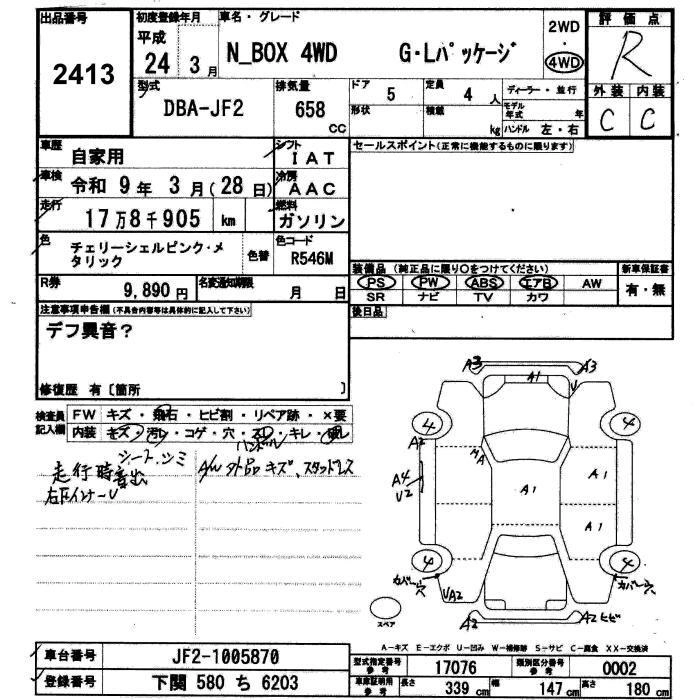 出品番号
2413
初度登録年月
平成
24 3月
車名・グレード
N_BOX 4WD G・Lパッケージ
2WD
・
4WD
評価点
R
外装 内装
C C
型式
DBA-JF2
排気量
658
CC
ドア
5
定員
4 人
形状
積載
kg
ディーラー・並行
モデル年式 年
ハンドル 左・右
車歴
自家用
シフト
IAT
車検
令和 9年 3月(28日)
冷房
AAC
走行
17万8千905 km
燃料
ガソリン
色
チェリーシェルピンク・メ
タリック
色替
色コード
R546M
R券
9,890円
名変通知期限
月 日
セールスポイント(正常に機能するものに限ります)
装備品 (純正品に限り○をつけてください)
PS PW ABS エアB AW
SR ナビ TV カワ
新車保証書
有・無
後日品
注意事項申告欄(不具合内容等は具体的に記入して下さい)
デフ異音?
修復歴 有〔箇所 〕
検査員
記入欄
FW キズ・飛石・ヒビ割・リペア跡・×要
内装 キズ・汚レ・コゲ・穴・スレ・キレ・破レ
シート シミ
ハンドル
走行時音出
A/W 外品 キズ、スタッドレス
右下インナーU
A3
A3
A1
U
4
4
A2
A4
U2
A1
A1
A1
4
4
カバー穴
カバー穴
UA2
A2
A2 ヒビ
スペア
A-キズ E-エクボ U-凹み W-補修跡 S-サビ C-腐食 XX-交換済
車台番号
JF2-1005870
登録番号
下関 580 ち 6203
型式指定番号
参考
17076
類別区分番号
参考
0002
車庫証明用
参考
長さ
339 cm
幅
147 cm
高さ
180 cm